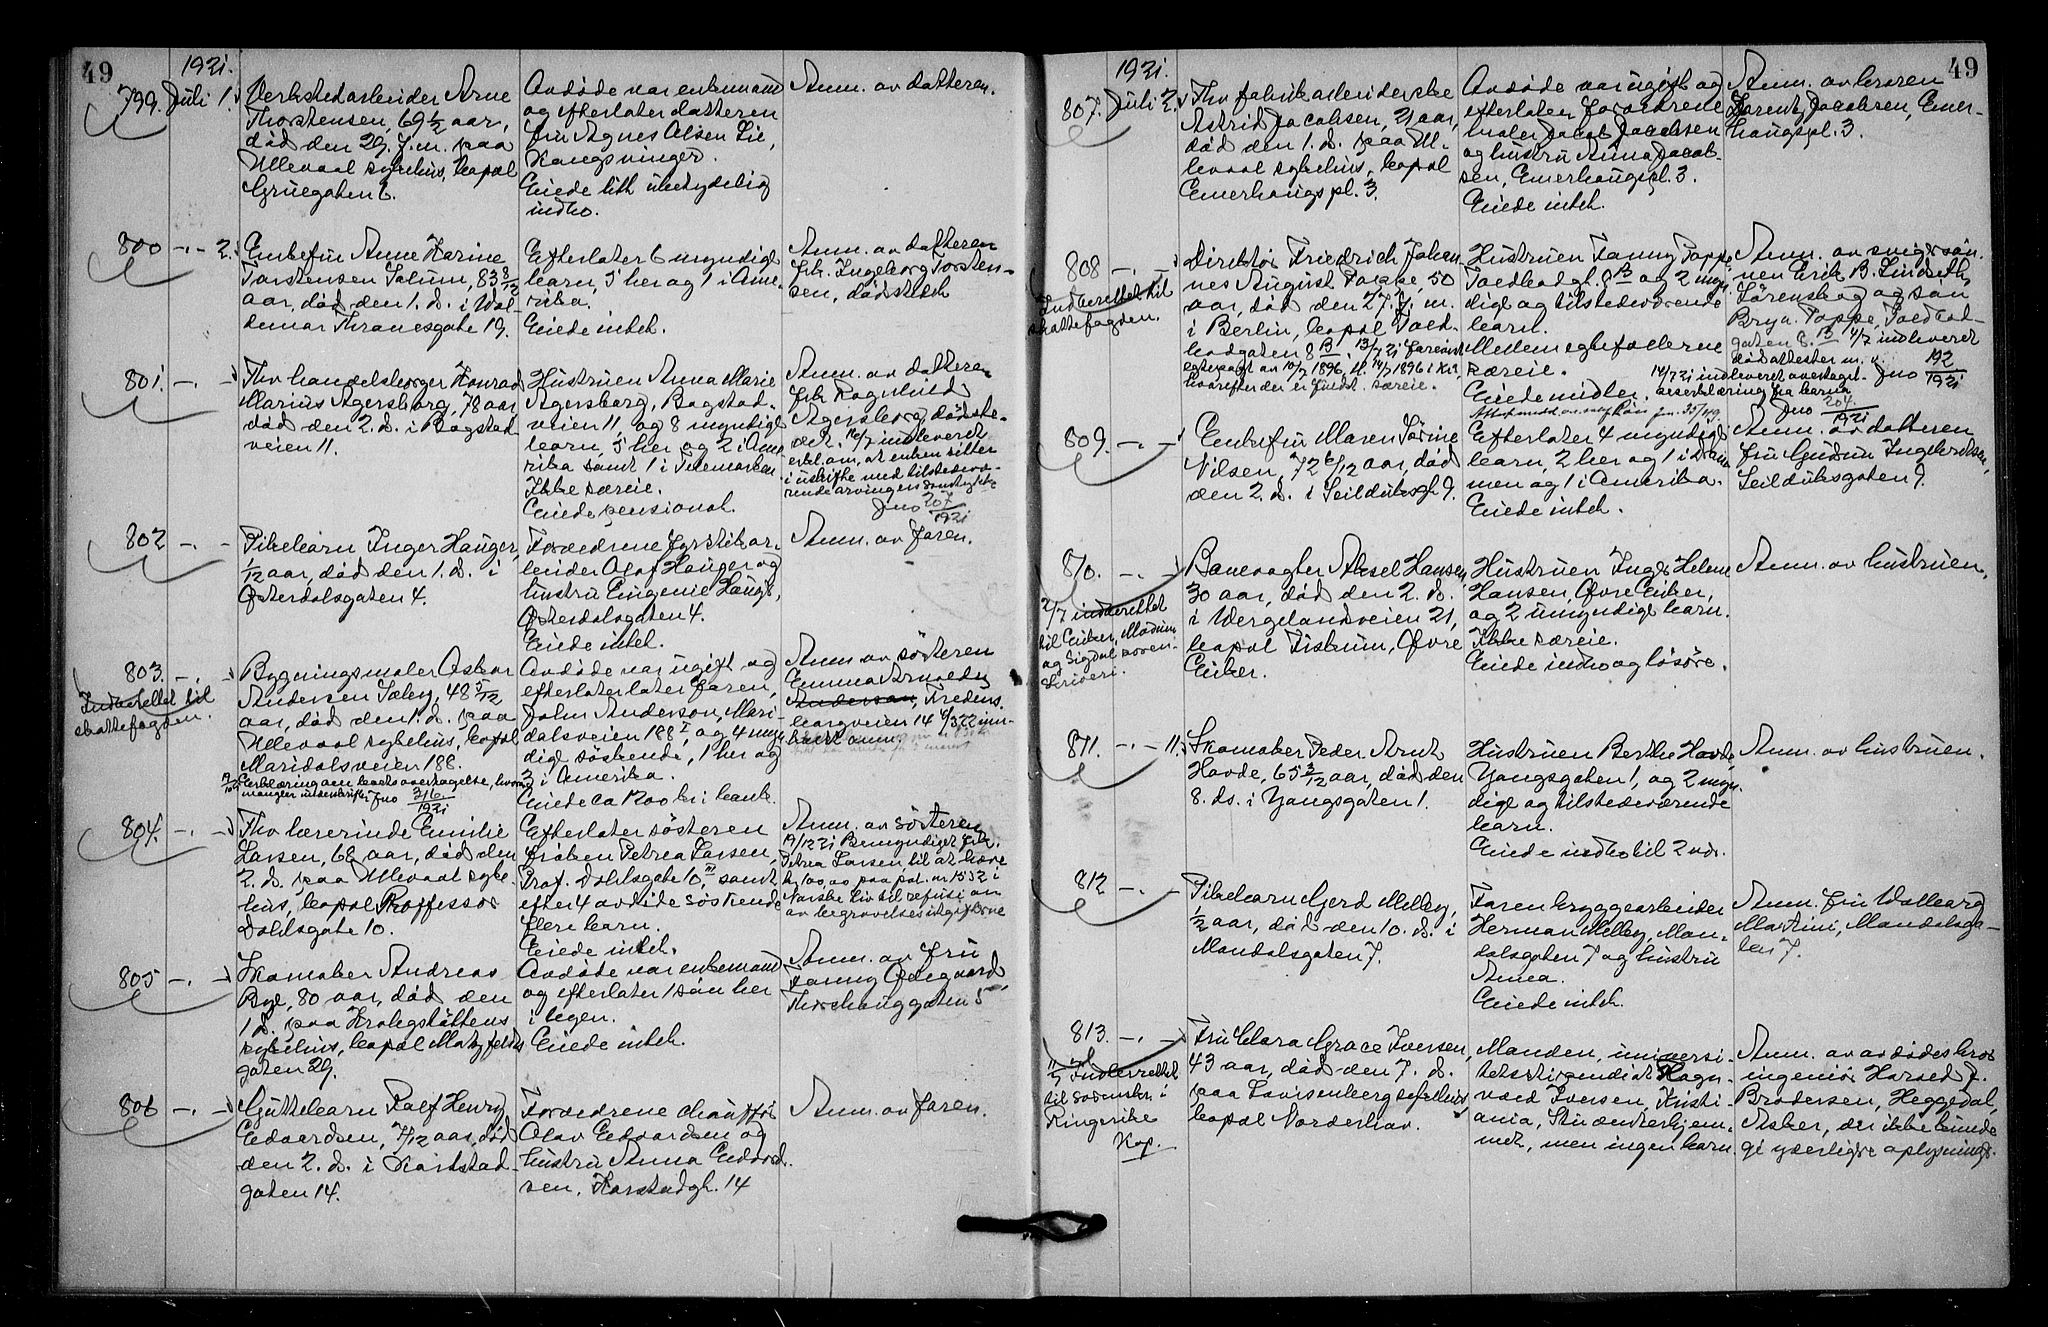 49
1921.
799. Juli 1.
Verkstedarbeider Arne
Thorstensen, 69 1/2 aar,
død den 29. f.m. paa
Ullevaal sykehus, bopæl
Gruegaten 6.
Avdøde var enkemand
og efterlater datteren
fru Agnes Olsen Lie,
Kongsvinger.
Eiede litt ubetydelig
indbo.
Anm. av datteren.
800 -"- 2.
Enkefru Anne Karine
Torstensen Solum, 83 8/12
aar, død den 1. ds. i Wal-
demar Thranesgate 19.
Efterlater 6 myndige
barn, 5 her og 1 i Ame-
rika.
Eiede intet.
Anm. av datteren
frk. Ingeborg Torsten-
sen, dødsstedet
801 -"- -
Fhv handelsborger Konrad
Marius Agersborg, 78 aar
død den 2. ds. i Bogstad-
veien 11.
Hustruen Anna Marie
Agersborg, Bogstad-
veien 11, og 8 myndige
barn, 5 her og 2 i Ame
rika samt 1 i Telemarken
Ikke særeie.
Eiede pensionat.
Anm. av datteren
frk Ragnhild
Agersborg, dødsste-
det. 16/7 indleveret
erkl. om, at enken sitter
i uskifte med tilstedevæ-
rende arvingers samtykke
Jno 207/1921
802 -"- -
Pikebarn Inger Hauger,
1/12 aar, død den 1. ds. i
Østerdalsgaten 4.
Forældrene fyrstikar-
beider Olaf Hauger og
hustru Eugenie Hauger,
Østerdalsgaten 4.
Eiede intet.
Anm. av faren.
803. -"- -
Indberettet til
skattefogden.
Bygningsmaler Oskar
Andersen Sæby, 48 5/12
aar, død den 1. ds. paa
Ullevaal sykehus, bopæl
Maridalsveien 188.
Erklæring om boets overtagelse, hvorav
mangler underskrift Jno 316/1921
Avdøde var ugift og
efterlater later faren,
John Anderson, Mari-
dalsveien 188 I, og 4 myn
dige søskende, 1 her og
3 i Amerika.
Eiede ca 1200 kr i bank.
Anm av søsteren
Emma Arnesen
Anderson, Fredens-
borgveien 14 4/3 22 inn-
804. -"- -
Fhv lærerinde Emilie
Larsen, 68 aar, død den
2. ds. paa Ullevaal syke-
hus, bopæl Proffessor
Dahlsgate 10.
Efterlater søsteren
frøken Petrea Larsen,
Prof. Dahlsgate 10, III samt
efter 4 avdøde søskende
flere barn.
Eiede intet.
Anm. av søsteren
19/12 21 Bemyndiget frk.
Petrea Larsen til at hæve
kr 100,00 paa pol. nr 1552 i
Norske Liv til refusion
av begravelsesutgifterne
805 -"- -
Skomaker Andreas
Bye, 80 aar, død den
1 ds. paa Krohgstøttens
sykehus, bopæl Maltzfeldts
gaten 29.
Avdøde var enkemand
og efterlater 1 søn her
i byen.
Eiede intet.
Anm. av fru
Fanny Ødegaard,
Thorshauggaten 5
806 -"- -
Guttebarn Ralf Henry
Edvardsen, 7/12 aar, død
den 2. ds. i Karlstad-
gaten 14.
Forældrene chauffør
Olav Edvardsen og
hustru Anna Edvard-
sen, Karstadgt. 14
Anm. av faren.
49
1921.
807. Juli 2.
Fhv fabrikarbeiderske
Astrid Jacobsen, 21 aar,
død den 1. ds. paa Ul-
levaal sykehus, bopæl
Enerhaugspl. 3.
Avdøde var ugift og
efterlater forældrene
maler Jacob Jacobsen
og hustru Anna Jacob-
sen, Enerhaugspl. 3.
Eiede intet.
Anm. av broren
Lorentz Jacobsen, Ener-
haugspl. 3.
808 -"- -
Indberettet til
skattefogden.
Direktør Friedrich Johan
nes August Poppe, 50
aar, død den 27. f. m.
i Berlin, bopæl Told-
bodgaten 8 B. 13/7 21 forevist
egtepagt av 10/7 1896, tl. 14/7 1896 i Kr.a,
hvorefter der er fuldt særeie.
Hustruen Fanny Poppe
Toldbodgt. 8 B og 2 myn
dige og tilstedeværende
barn.
Mellem egtefællerne
særeie.
Eiede midler.
Anm. av svigersøn-
nen Erik B. Lindseth
Lørenskog og søn
Brya. Poppe, Toldbod-
gaten 8 B 4/7 indleveret
dødsattester m. v.
Jno 192/1921
14/7 21 indleveret overtagel-
seserklæring fra barna
Jno 204/1921
809. -"- -
Enkefru Maren Sørine
Nilsen, 72 6/12 aar, død
den 2. ds. i Seilduksgt 9.
Efterlater 4 myndige
barn, 2 her og 1 i Dram
men og 1 i Amerika.
Eiede intet.
Anm. av datteren
fru Gudrun Ingebretsen,
Seilduksgaten 9.
810. -"- -
2/7 indberettet
til Eiker, Modum
og Sigdal soren-
skriveri.
Banevogter Aksel Hansen,
30 aar, død den 2. ds.
i Wergelandsveien 21,
bopæl Fiskum, Øvre
Eiker.
Hustruen Inga Helene
Hansen, Øvre Eiker,
og 2 umyndige barn.
Ikke særeie.
Eiede indbo og løsøre.
Anm. av hustruen.
811. -"- 11.
Skomaker Peder Arnt
Hovde, 65 3/12 aar, død den
8. ds. i Yongsgaten 1.
Hustruen Berthe Hovde
Yongsgaten 1, og 2 myn
dige og tilstedeværende
barn.
Eiede indbo til 2 vær.
Anm. av hustruen.
812 -"- -
Pikebarn Gjerd Melby,
1/2 aar, død den 10. ds. i
Mandalsgaten 7.
Faren bryggearbeider
Herman Melby, Man-
dalsgaten 7 og hustru
Anna.
Eiede intet.
Anm. fru Walborg
Martini, Mandalsga-
ten 7.
813. -"- -
11/7 Indberettet
til sorenskr. i
Ringerike
Kop.
Fru Clara Grace Iversen,
43 aar, død den 7. ds.
paa Lovisenberg sykehus
bopæl Norderhov.
Manden, universi-
tetsstipendiat Ragn-
vald Iversen, Kristi-
ania, Studenterhjem-
met, men ingen barn
Anm. av avdødes bror
ingeniør Harald J.
Brodersen, Heggedal,
Asker, der ikke kunde
gi yderligere oplysninger.